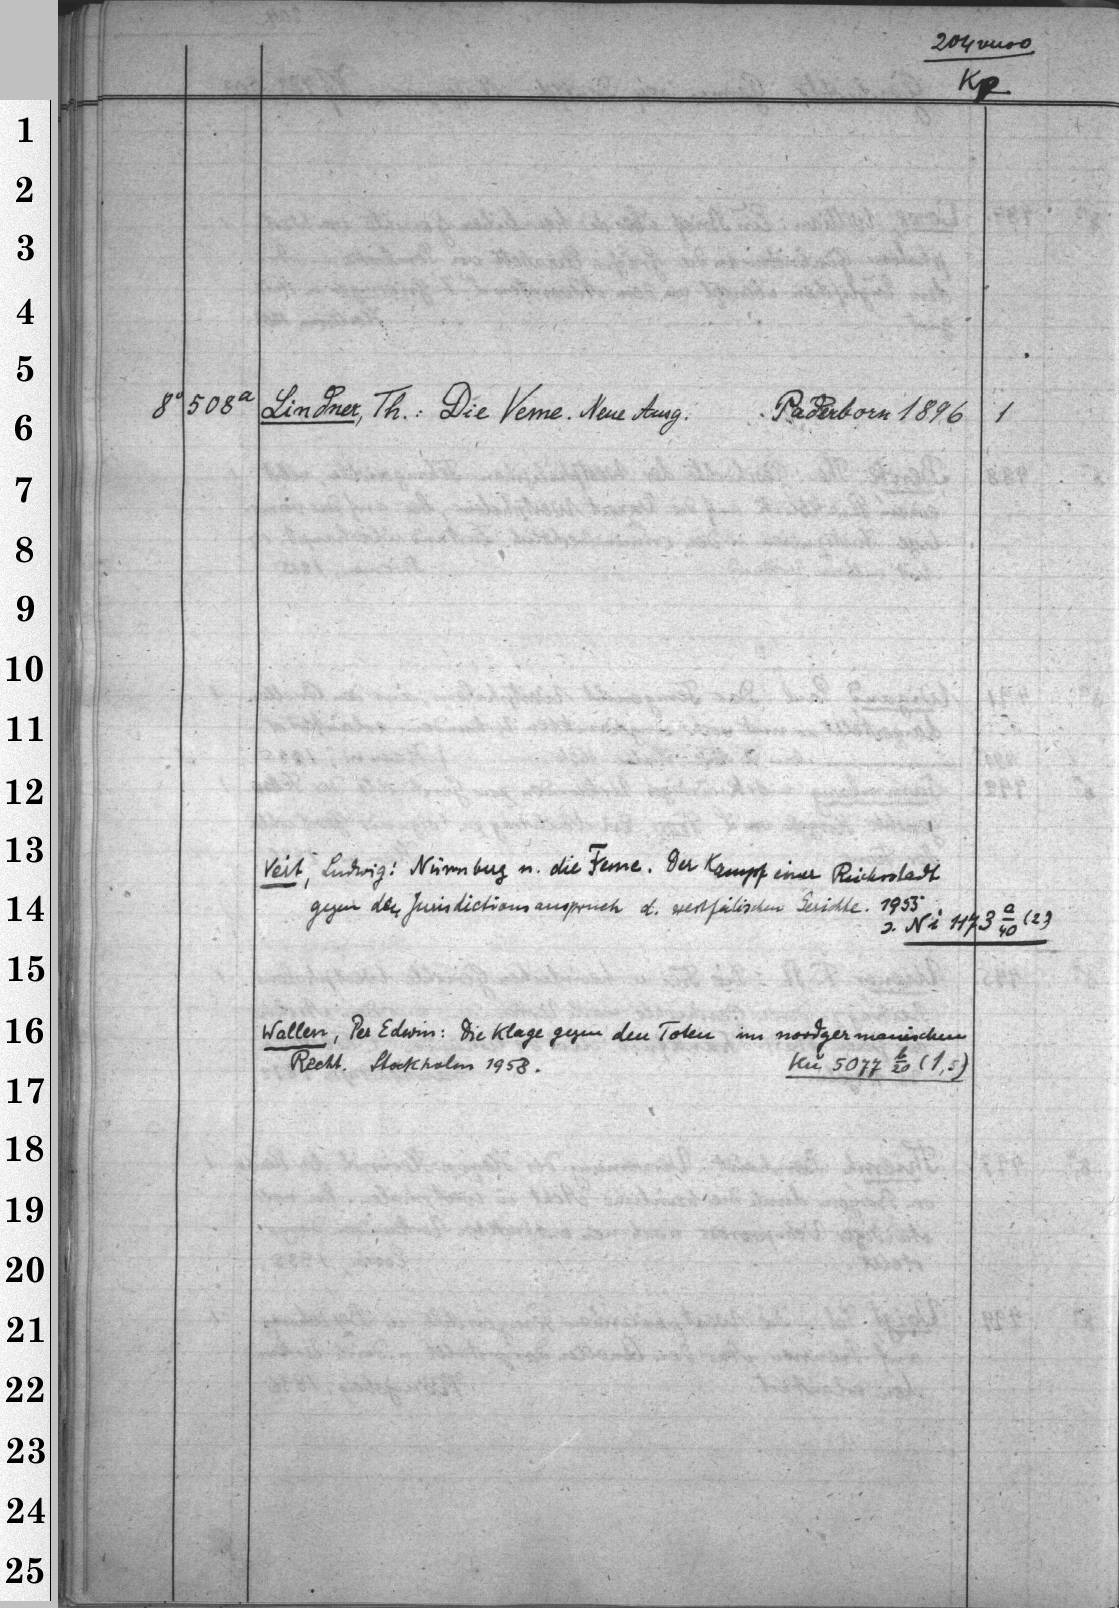 204 verso
Kp
8° 508a Lindner, Th.: Die Veme. Neue Ausg. Paderborn 1896 1
Veit, Ludwig: Nürnberg u. die Feme. Der Kampf einer Reichsstadt
gegen den Jurisdictionsanspruch d. westfälischen Gerichte. 1955
s. Ni 1173 a/40 (2)
Wallen, Per Edwin: Die Klage gegen den Toten im nordgermanischen
Recht. Stockholm 1958. Kü 5077 b/20 (1,5)
1
2
3
4
5
6
7
8
9
10
11
12
13
14
15
16
17
18
19
20
21
22
23
24
25